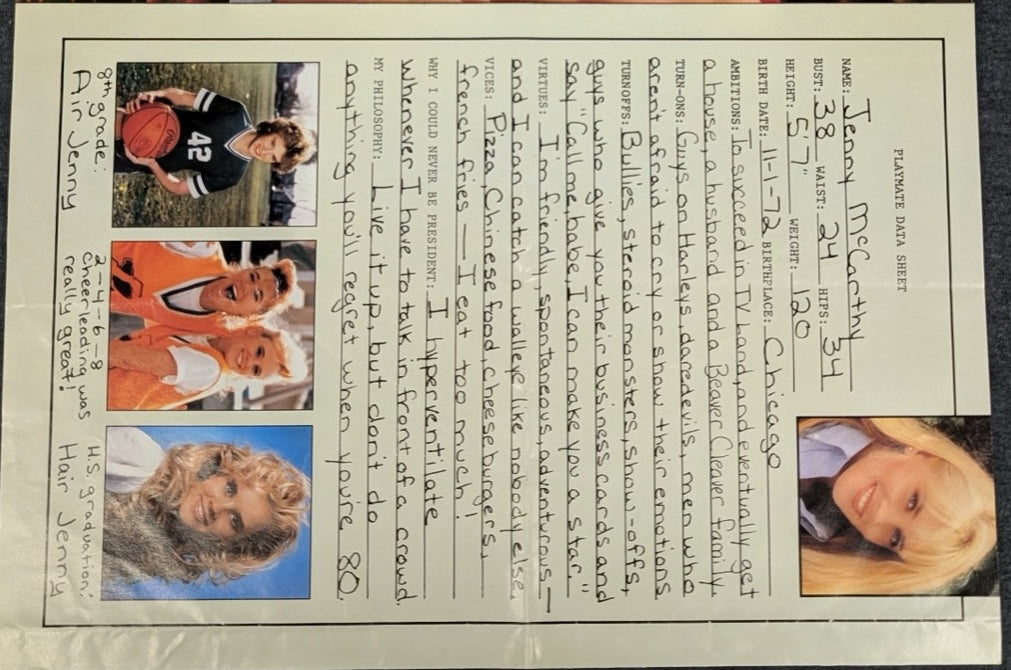 PLAYMATE DATA SHEET
NAME: Jenny McCarthy
BUST: 38 WAIST: 24 HIPS: 34
HEIGHT: 5'7" WEIGHT: 120
BIRTH DATE: 11-1-72 BIRTHPLACE: Chicago
AMBITIONS: To succeed in TV Land, and eventually get
a house, a husband and a Beaver Cleaver family.
TURN-ONS: Guys on Harleys, daredevils, men who
aren't afraid to cry or show their emotions.
TURNOFFS: Bullies, steroid monsters, show-offs,
guys who give you their business cards and
say "Call me, babe, I can make you a star."
VIRTUES: I'm friendly, spontaneous, adventurous —
and I can catch a walleye like nobody else.
VICES: Pizza, Chinese food, cheeseburgers,
french fries — I eat too much!
WHY I COULD NEVER BE PRESIDENT: I hyperventilate
whenever I have to talk in front of a crowd.
MY PHILOSOPHY: Live it up, but don't do
anything you'll regret when you're 80.
42
8th grade:
Air Jenny
2-4-6-8
cheerleading was
really great!
H.S. graduation:
Hair Jenny